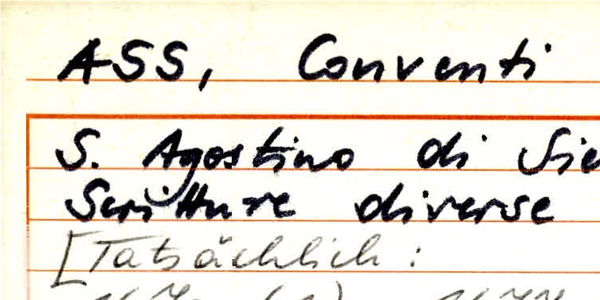 ASS, Conventi
S. Agostino di Sie
Scritture diverse
[Tatsächlich: